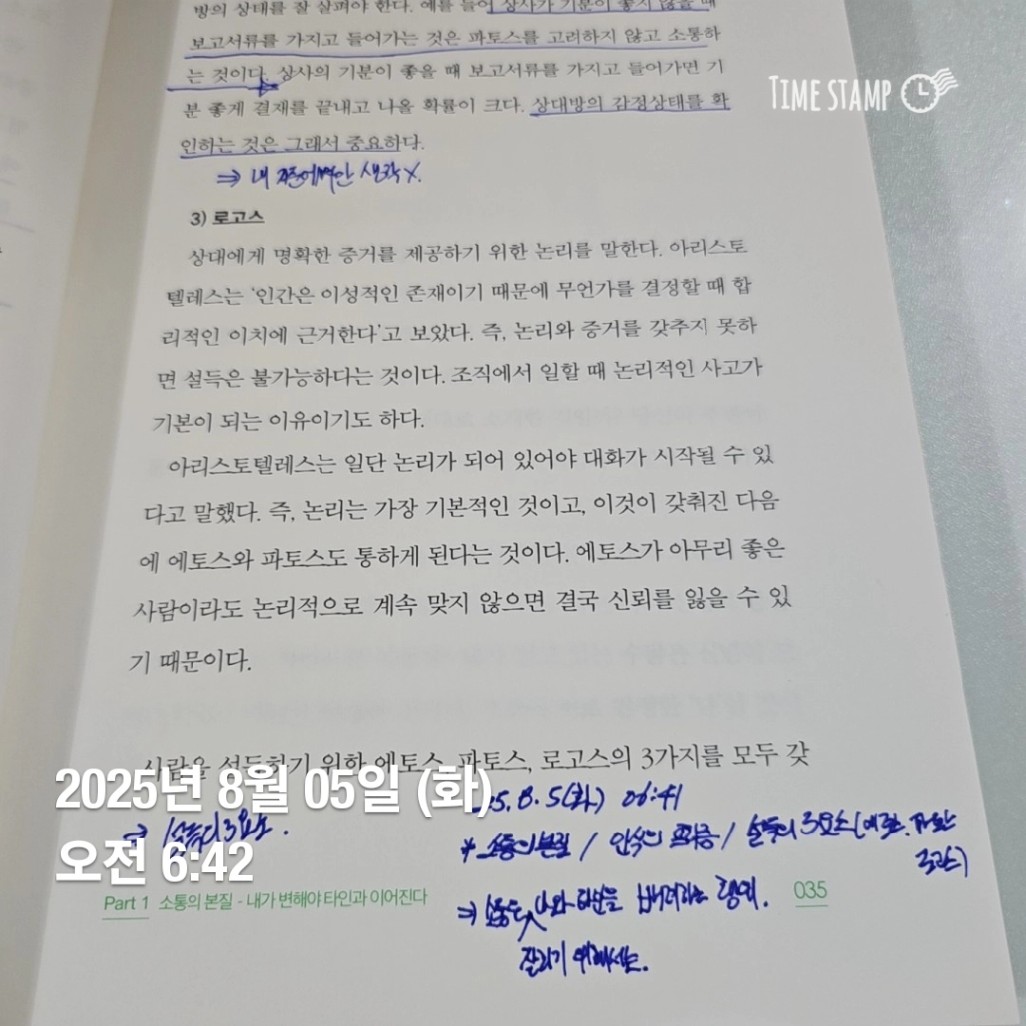 방의 상태를 잘 살펴야 한다. 예를 들어 상사가 기분이 좋지 않을 때
보고서류를 가지고 들어가는 것은 파토스를 고려하지 않고 소통하
는 것이다. 상사의 기분이 좋을 때 보고서류를 가지고 들어가면 기
분 좋게 결재를 끝내고 나올 확률이 크다. 상대방의 감정상태를 확
인하는 것은 그래서 중요하다.
TIME STAMP
⇒ 내 생각 X.
3) 로고스
상대에게 명확한 증거를 제공하기 위한 논리를 말한다. 아리스토
텔레스는 '인간은 이성적인 존재이기 때문에 무언가를 결정할 때 합
리적인 이치에 근거한다'고 보았다. 즉, 논리와 증거를 갖추지 못하
면 설득은 불가능하다는 것이다. 조직에서 일할 때 논리적인 사고가
기본이 되는 이유이기도 하다.
아리스토텔레스는 일단 논리가 되어 있어야 대화가 시작될 수 있
다고 말했다. 즉, 논리는 가장 기본적인 것이고, 이것이 갖춰진 다음
에 에토스와 파토스도 통하게 된다는 것이다. 에토스가 아무리 좋은
사람이라도 논리적으로 계속 맞지 않으면 결국 신뢰를 잃을 수 있
기 때문이다.
사람을 설득하기 위한 에토스, 파토스, 로고스의 3가지를 모두 갖
2025년 8월 05일 (화)
오전 6:42
⇒ 설득의 3요소.
25. 8. 5(화) 06:41
* 소통의 본질 / 인식의 / 설득의 3요소(에토스. 파토스
로고스)
⇒ 소통은 나와 타인을 행위.
잘하기 위해서는.
Part 1 소통의 본질 - 내가 변해야 타인과 이어진다
035